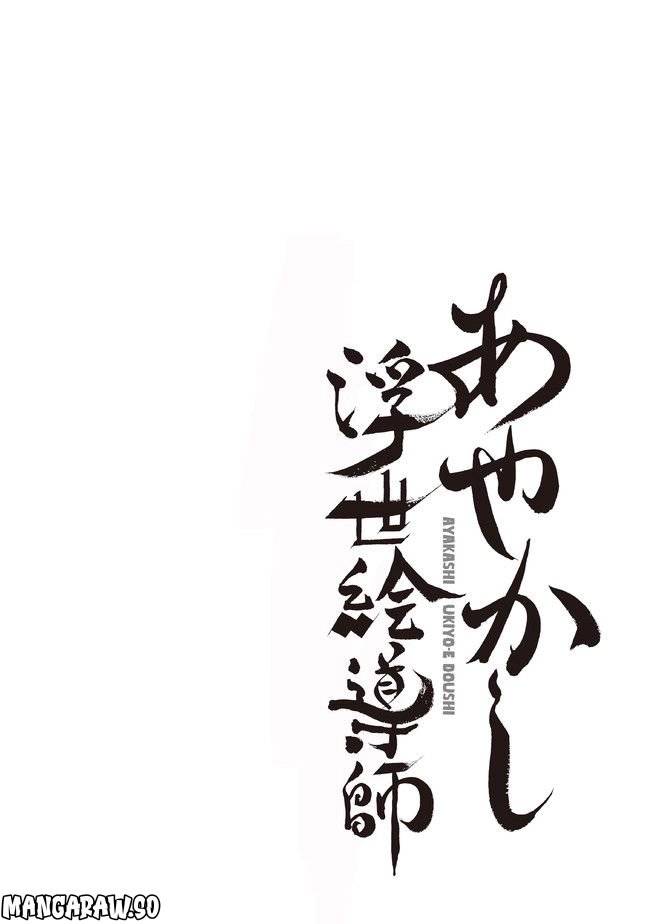 あやかし
浮世絵導師
AYAKASHI UKIYO-E DOUSHI
MANGARAW.SO